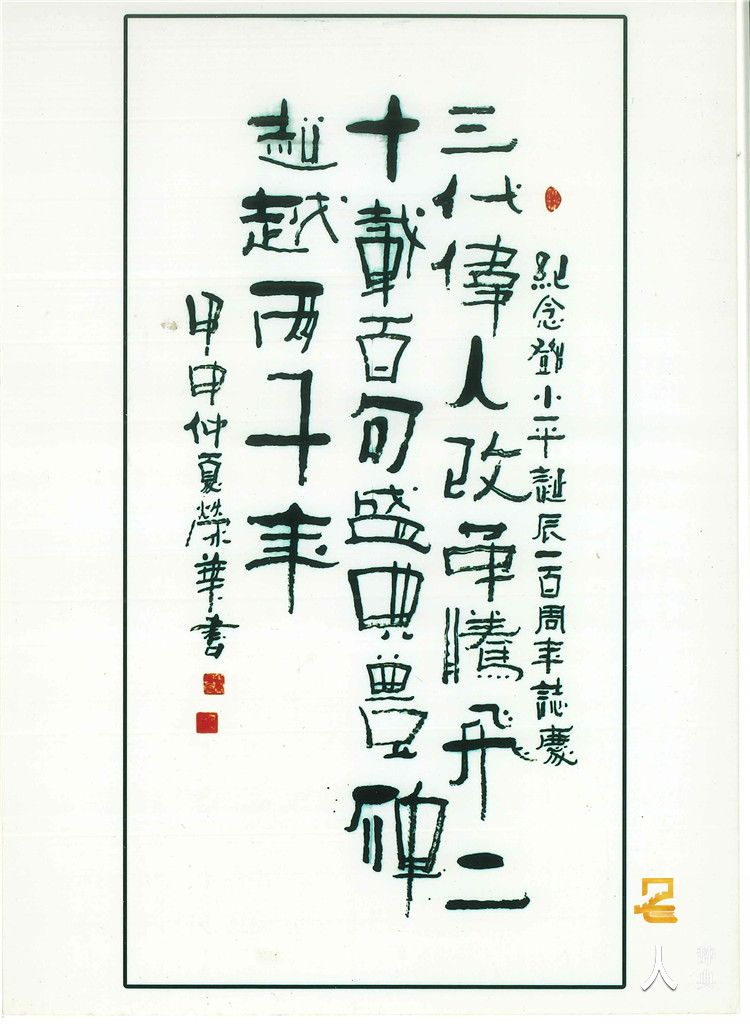 紀念鄧小平誕辰一百周年誌慶
三代偉人改革騰飛二
十載百句盛典豊碑
超越两千年
甲申仲夏榮華書
人
辞典